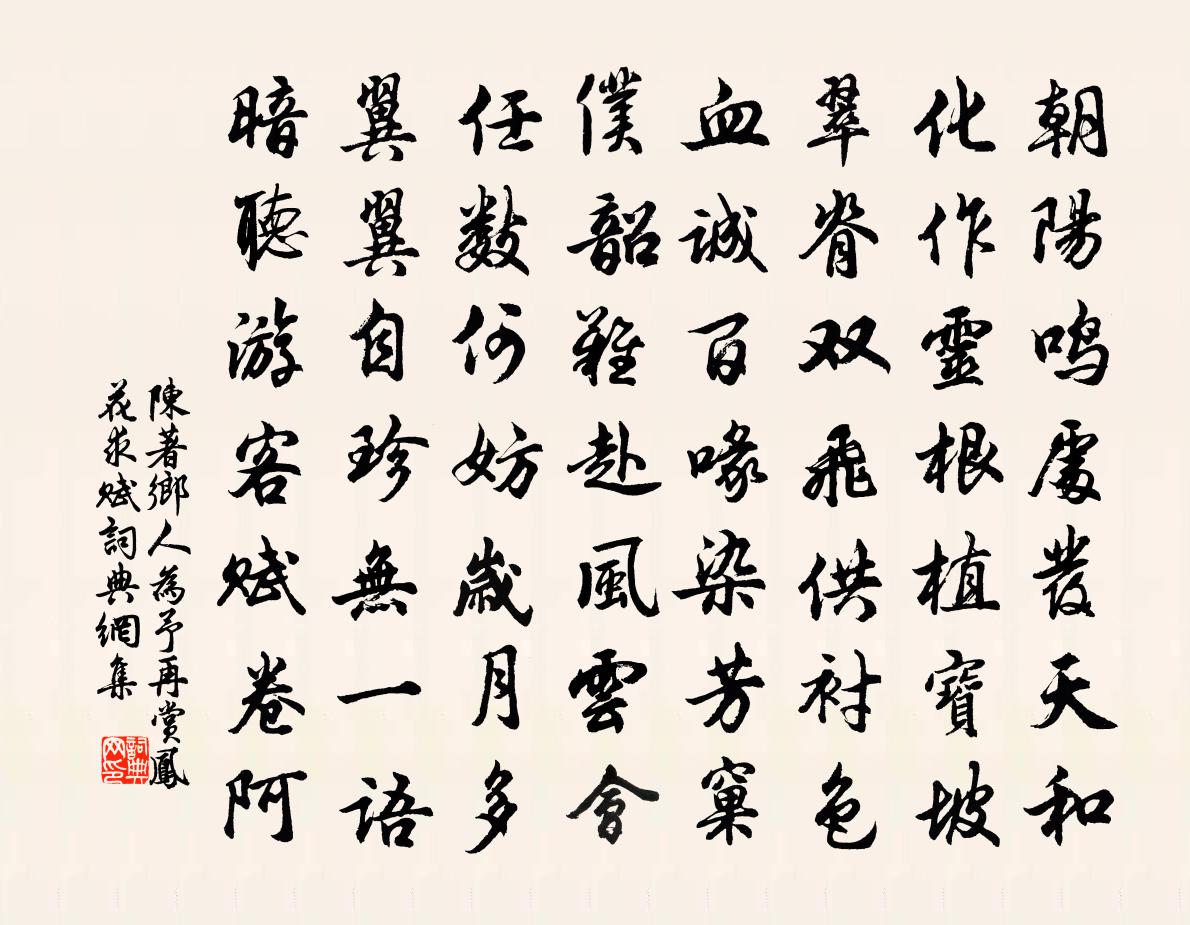 朝陽鳴處發天和
化作靈根植寶坡
翠脊双飛供襯色
血誠百喙染芳窠
僕韶難赴風雲會
任數何妨歲月多
翼翼自珍無一語
暗聽游客賦卷阿
陳著鄉人為予再賞鳳
花求賦詞典網集
詞典网印